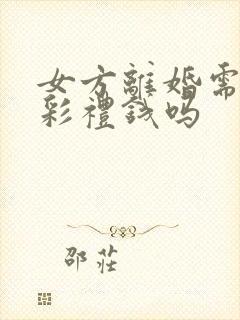 女方離婚需
彩禮錢吗
邵莊